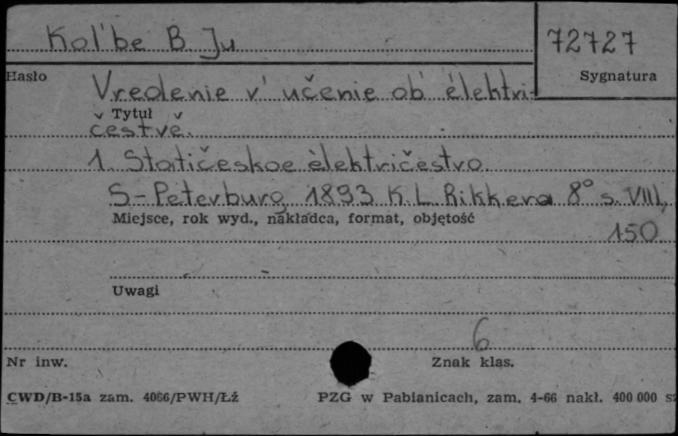 Kol'be B Ju
72727
Hasło
Sygnatura
Vredenie v' učenie ob' èlektri-
Tytuł
čestvě.
1. Statičeskoe èlektričestvo.
S-Peterburg 1893 K L Rikkera 8° s. VIII,
Miejsce, rok wyd., nakładca, format, objętość
150
Uwagi
6
Nr inw.
Znak klas.
CWD/B-15a zam. 4066/PWH/Łź
PZG w Pabianicach, zam. 4-66 nakł. 400 000 sz